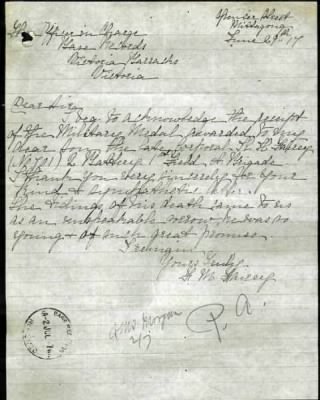 Spencer Street
Mittagong
June 29th 17
The Officer in Charge
Base Records
Victoria Barracks
Victoria
Dear Sir,
I beg to acknowledge the receipt
of the Military Medal awarded to my
dear son the late Corporal
(No 701) Battery 1st Field A Brigade
I thank you very sincerely for your
kind & sympathetic letter.
The tidings of his death came to us
as an unspeakable sorrow, he was so
young & of such great promise
I remain
Yours truly
2 JUL
P. A.